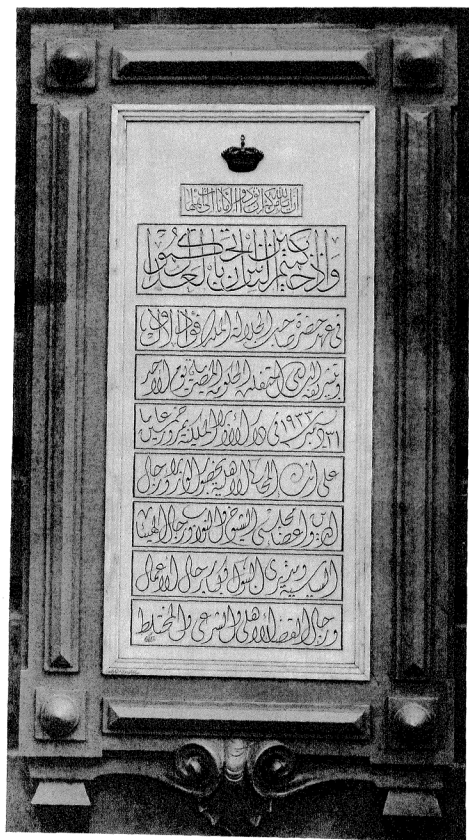 ان الله يأمركم ان تؤدوا الامانات الى اهلها
واذا حكمتم بين الناس ان تحكموا بالعدل
فى عهد حضرة صاحب الجلالة الملك فؤاد الاول
وتشريفه السامى احتفلت الحكومة المصرية يوم الاحد
٣١ ديسمبر ١٩٣٣ فى دار الاوبرا الملكية بمرور خمسين عاما
على انشاء المحاكم الاهلية بحضور الوزراء ورجال
الدين واعضاء مجلسى الشيوخ والنواب ورجال الهيئات
السياسية وكبار رجال الاعمال
ورجال القضاء الاهلى والشرعى والمختلط